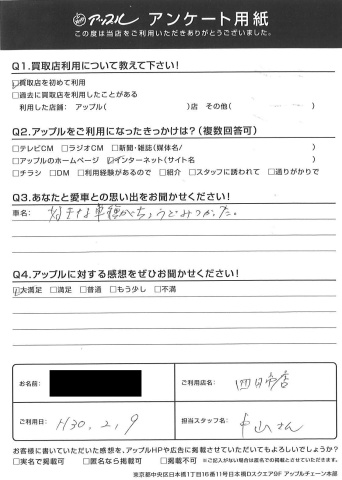 アップル アンケート用紙
この度は当店をご利用いただきありがとうございました。
Q1.買取店利用について教えて下さい!
☑買取店を初めて利用
□過去に買取店を利用したことがある
利用した店舗: アップル( )店 その他( )
Q2.アップルをご利用になったきっかけは?(複数回答可)
□テレビCM □ラジオCM □新聞・雑誌(媒体名/ )
□アップルのホームページ ☑インターネット(サイト名 )
□チラシ □DM □利用経験があるので □紹介 □スタッフに誘われて □通りがかりで
Q3.あなたと愛車との思い出をお聞かせください!
車名: 好きな車種がちょうどみつかった。
Q4.アップルに対する感想をぜひお聞かせください!
☑大満足 □満足 □普通 □もう少し □不満
お名前: ご利用店名: 四日市店
ご利用日: H30.2.9 担当スタッフ名: 中山さん
お客様に書いていただいた感想を、アップルHPや広告に掲載させていただいてもよろしいでしょうか?
□実名で掲載可 □匿名なら掲載可 □掲載不可 ※ご記入がない場合は匿名での掲載とさせていただきます。
東京都中央区日本橋1丁目16番11号日本橋Dスクエア9F アップルチェーン本部